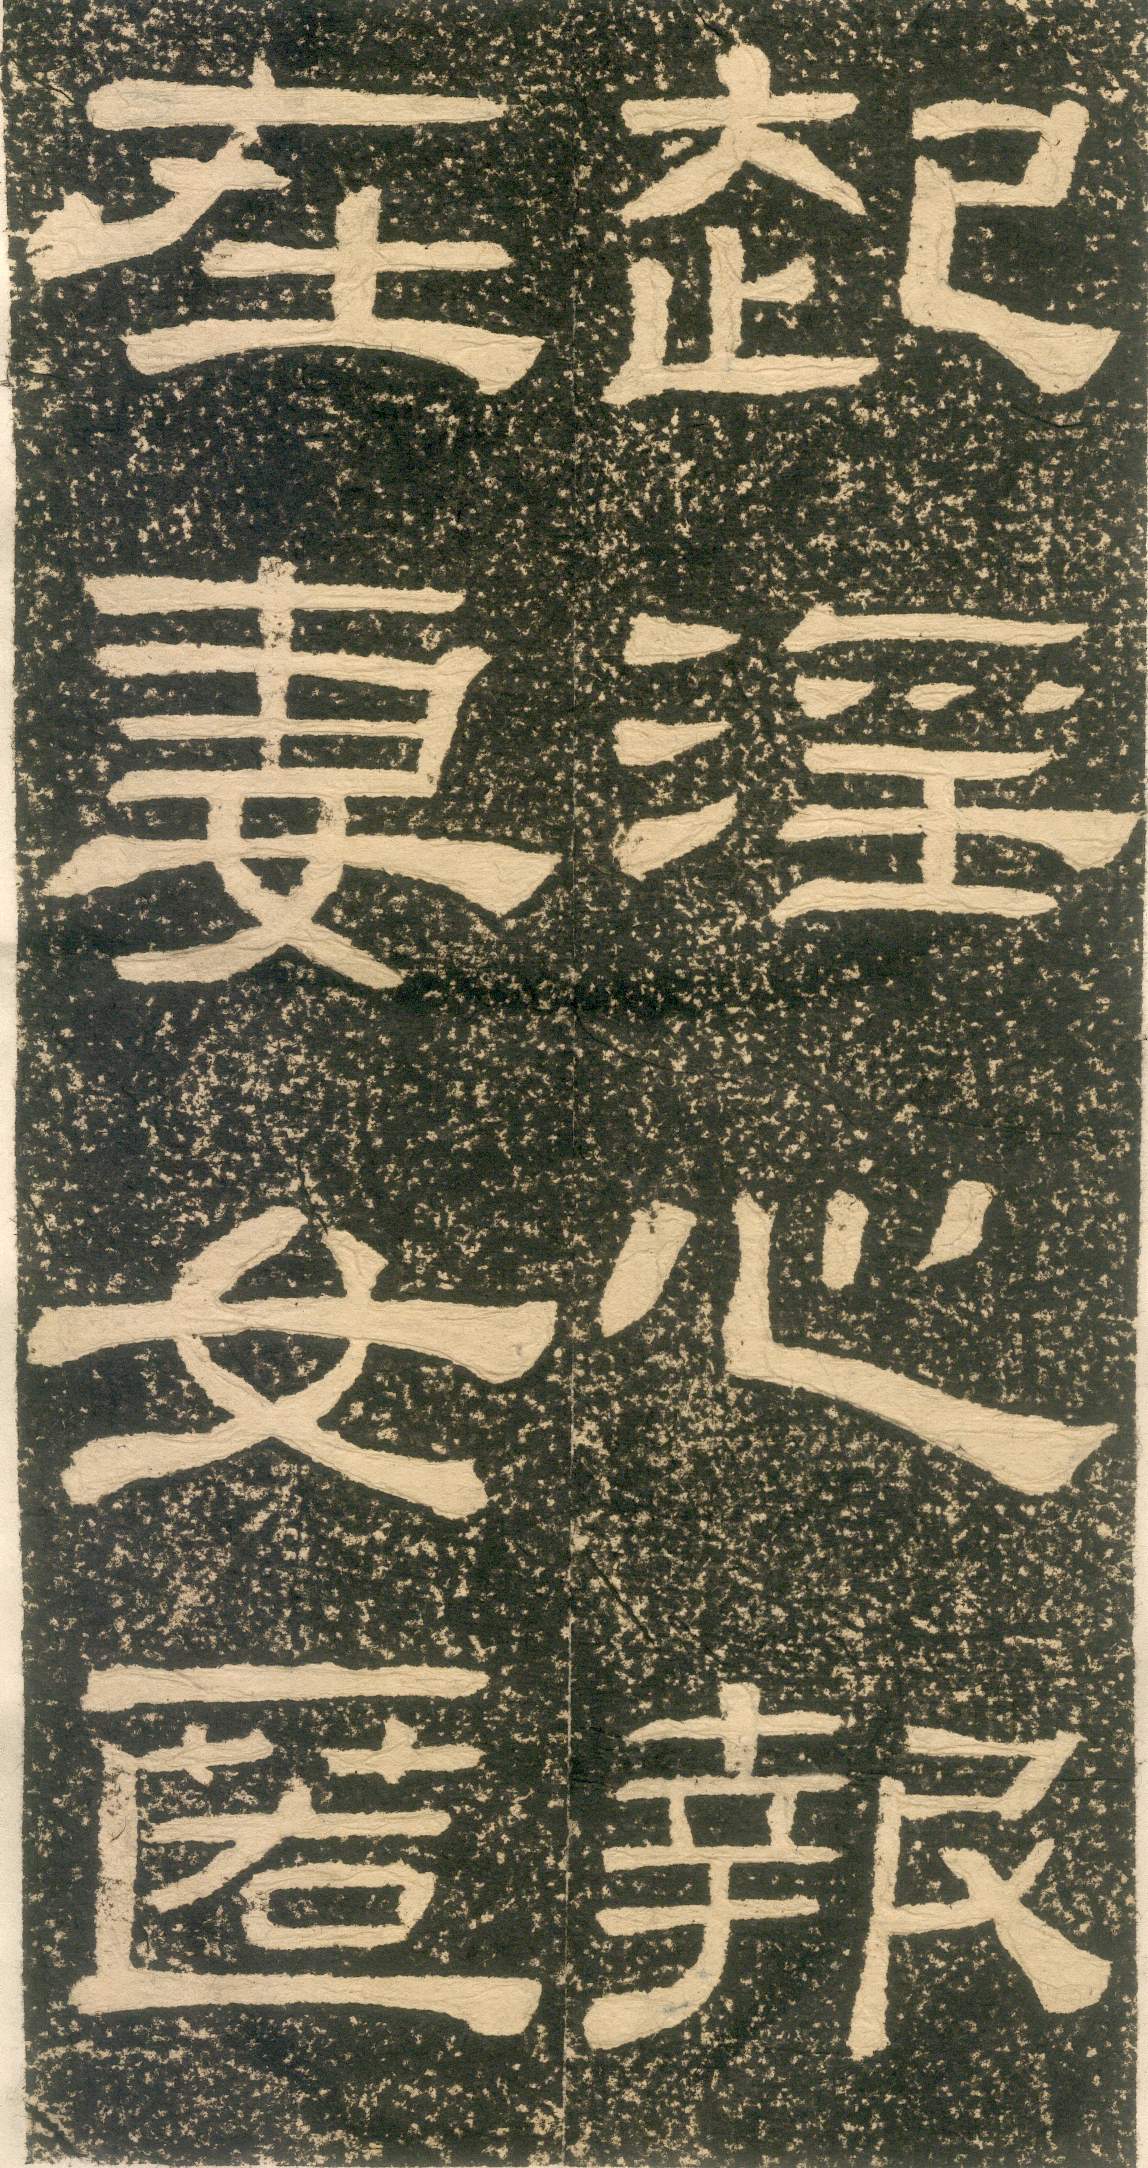 起淫心報
在妻女匿